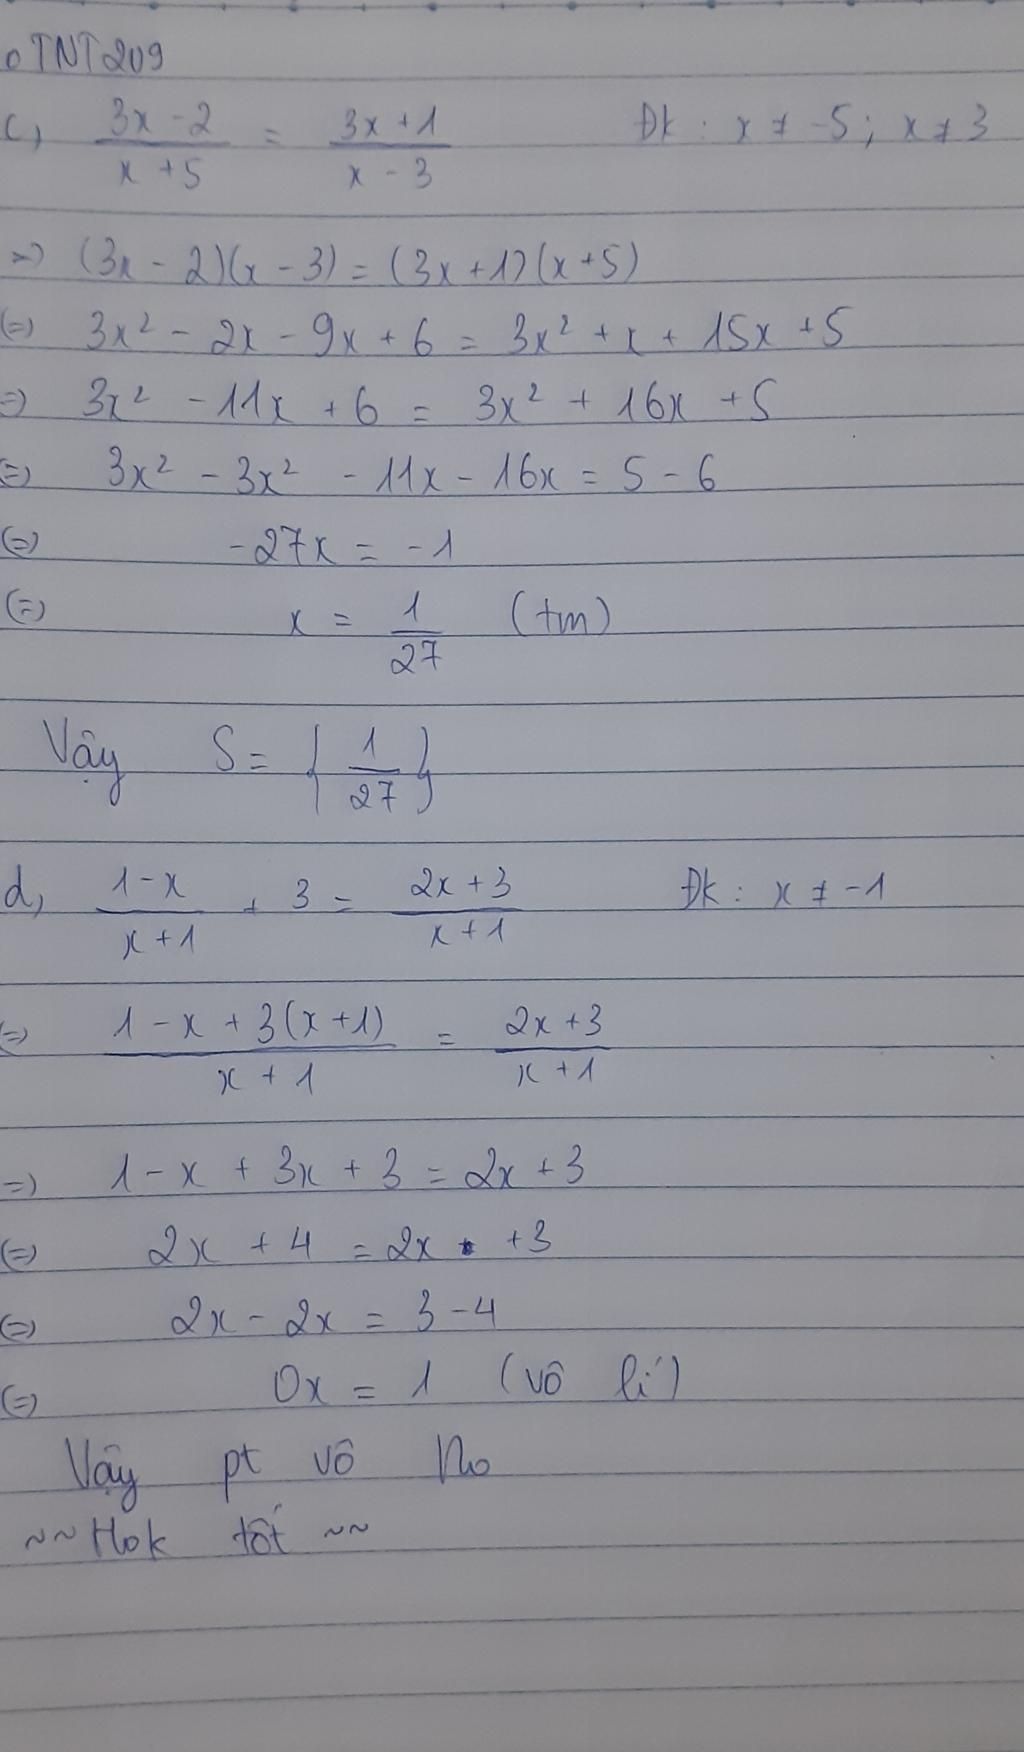 o TNT209
c, (3x - 2)/(x + 5) = (3x + 1)/(x - 3) Đk : x ≠ -5 ; x ≠ 3
=> (3x - 2)(x - 3) = (3x + 1)(x + 5)
(=) 3x² - 2x - 9x + 6 = 3x² + x + 15x + 5
=) 3x² - 11x + 6 = 3x² + 16x + 5
(=) 3x² - 3x² - 11x - 16x = 5 - 6
(=) -27x = -1
(=) x = 1/27 (tm)
Vậy S = { 1/27 }
d, (1 - x)/(x + 1) + 3 = (2x + 3)/(x + 1) Đk : x ≠ -1
(=) (1 - x + 3(x + 1))/(x + 1) = (2x + 3)/(x + 1)
=) 1 - x + 3x + 3 = 2x + 3
(=) 2x + 4 = 2x + 3
(=) 2x - 2x = 3 - 4
(=) 0x = 1 (vô lí)
Vậy pt vô no
~~ Hok tốt ~~